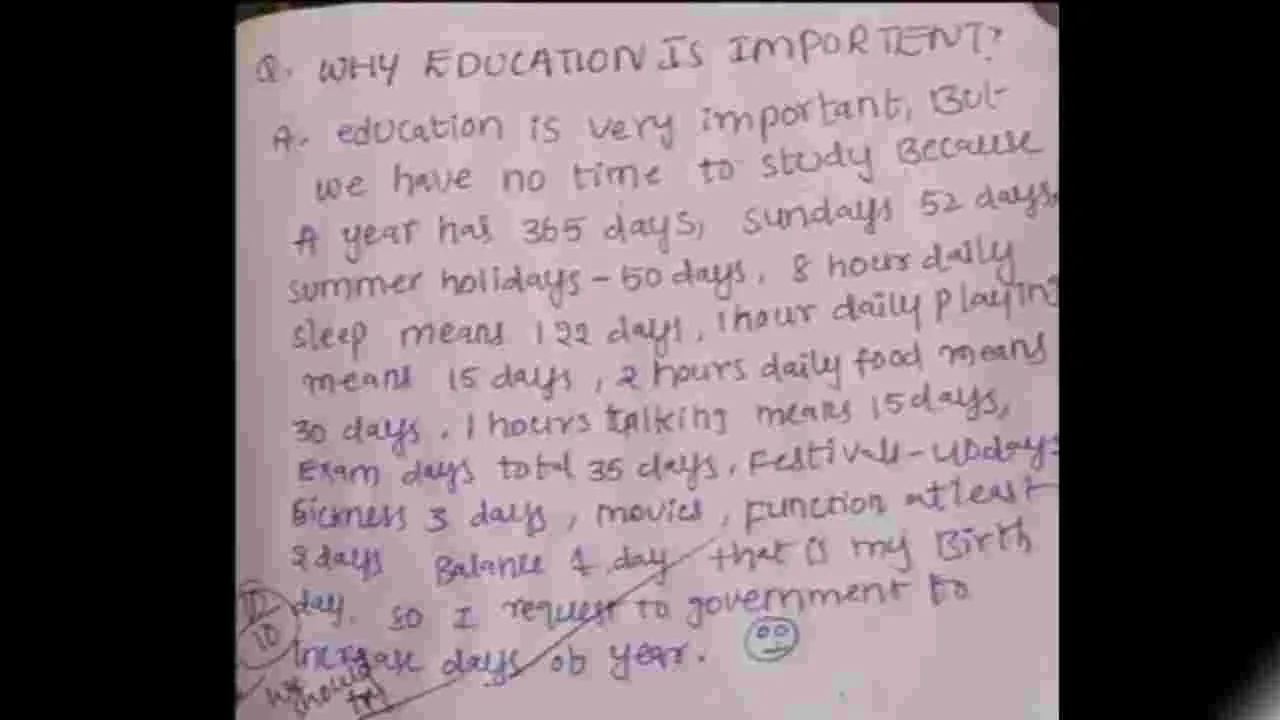 Q. WHY EDUCATION IS IMPORTENT?
A. education is very important, But
we have no time to study Because
A year has 365 days, sundays 52 days,
summer holidays - 50 days, 8 hour daily
sleep means 122 days, 1 hour daily playing
means 15 days, 2 hours daily food means
30 days, 1 hours talking means 15 days,
Exam days total 35 days, Festivals - 40 days
Sickness 3 days, movies, function at least
2 days Balance 1 day that is my Birth
day. so I request to government to
increase days of year.
10
we should try